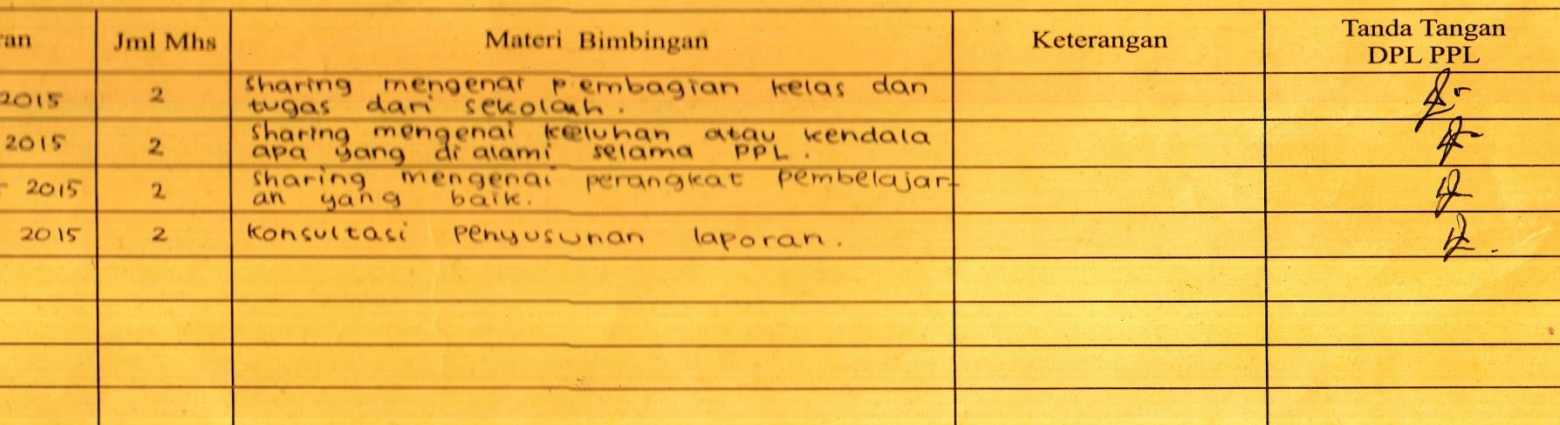 an Jml Mhs Materi Bimbingan Keterangan Tanda Tangan
DPL PPL
2015 2 sharing mengenai pembagian kelas dan
tugas dari sekolah.
2015 2 sharing mengenai keluhan atau kendala
apa yang di alami selama PPL.
2015 2 sharing mengenai perangkat pembelajar-
an yang baik.
2015 2 Konsultasi penyusunan laporan.